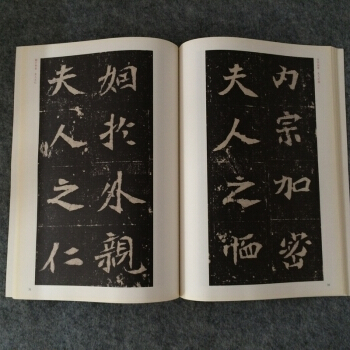 内宗加密
夫人之
姻於外親
夫人之仁